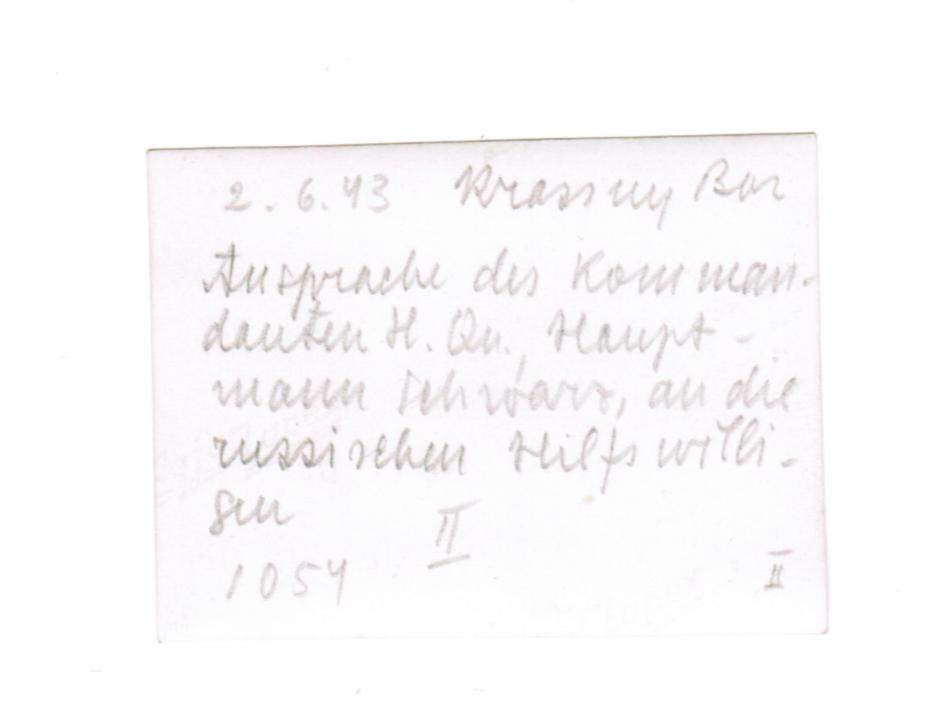 2. 6. 43 Krassny Bor
Ansprache des Komman-
danten H. Qu., Haupt-
mann Schwarz, an die
russischen Hilfswilli-
gen
II
1054
II